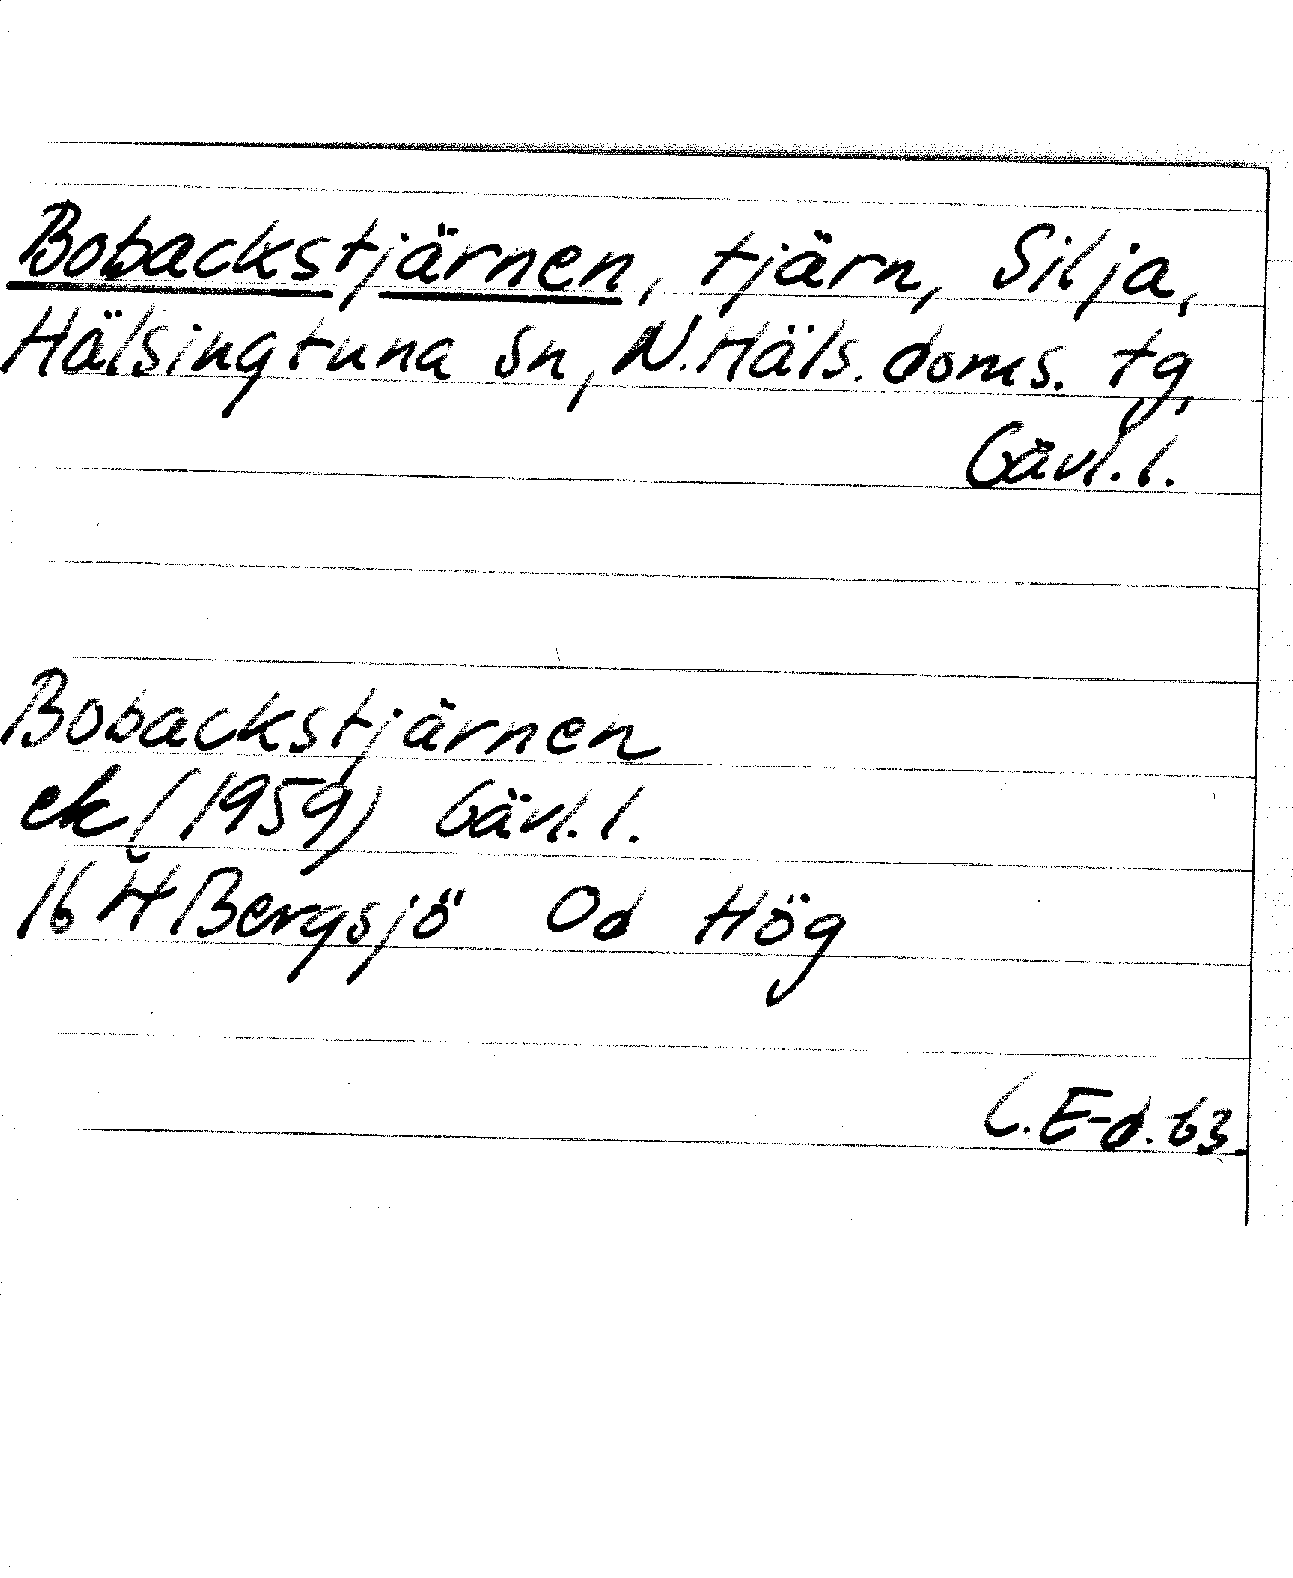 Bobackstjärnen, tjärn, Silja,
Hälsingtuna sn, N. Häls. doms. tg,
Gävl. l.
Bobackstjärnen
ek (1959) Gävl. l.
16 H Bergsjö Od Hög
C. E-d. 63.